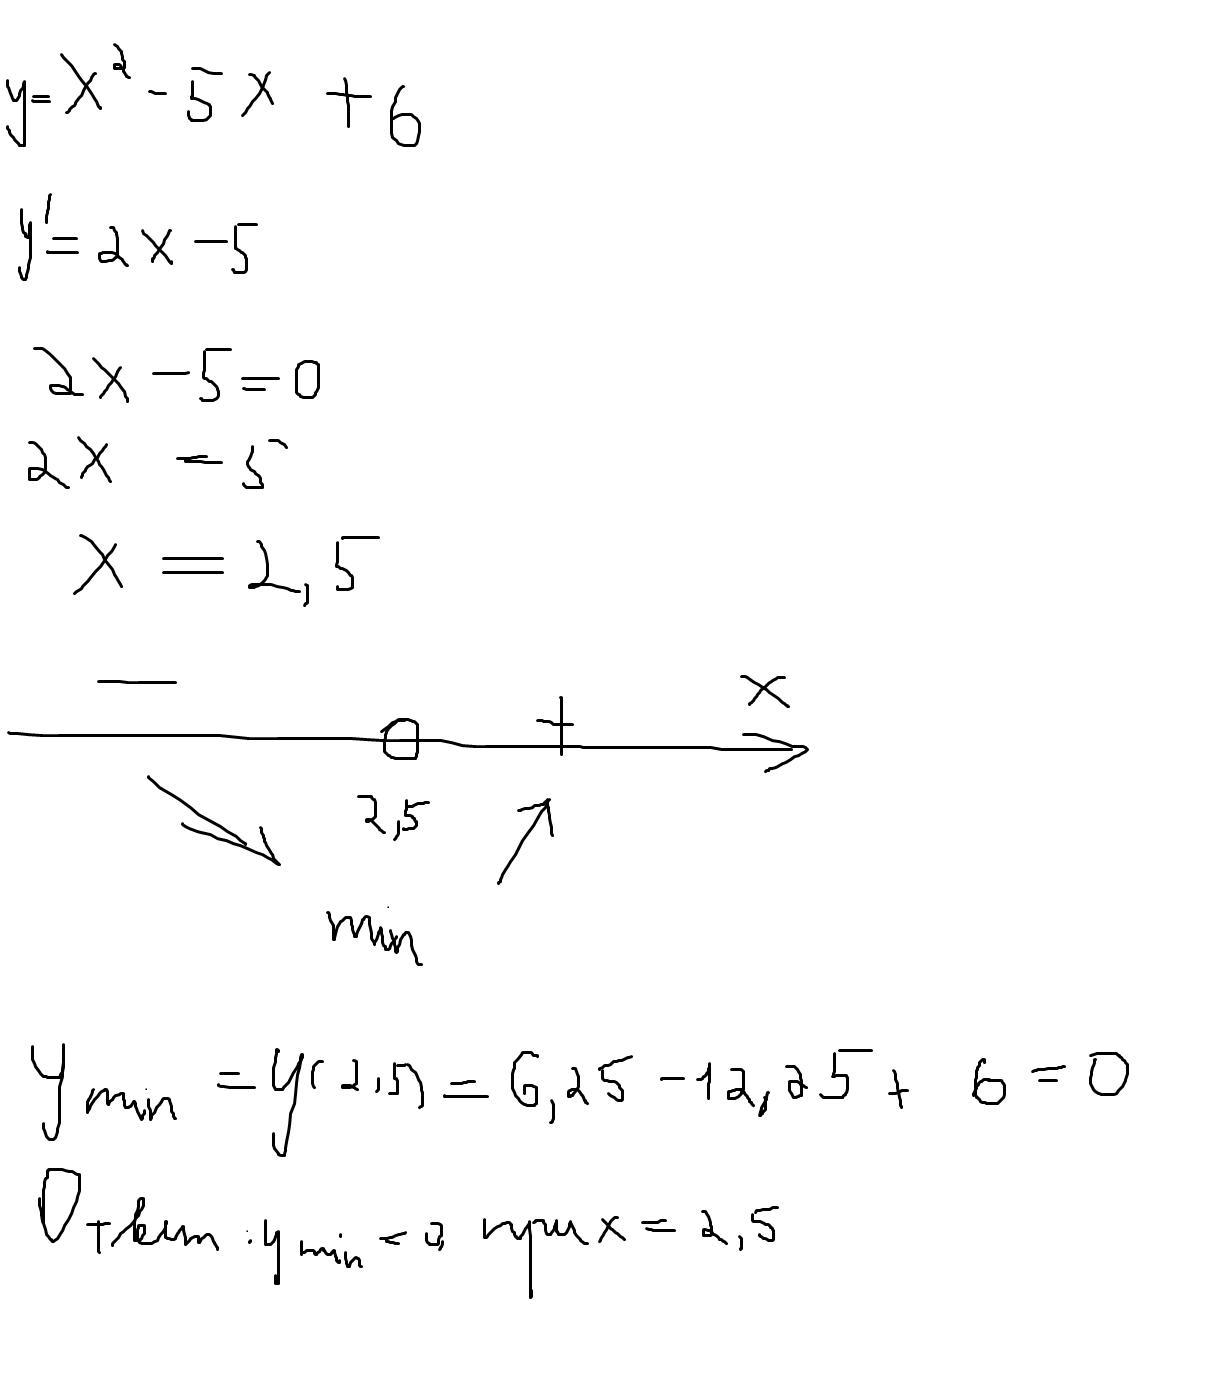 y=x²-5x+6
y'=2x-5
2x-5=0
2x = 5
x=2,5
− + x
2,5
min
y min = y(2,5) = 6,25-12,25+6=0
Ответ: y min = 0, при x = 2,5